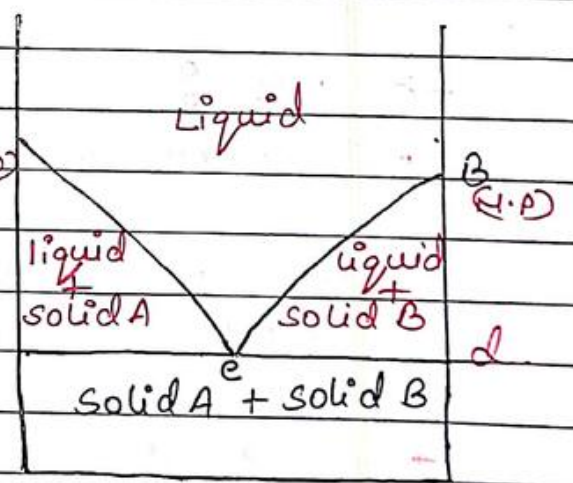 Liquid
B
(M.P)
liquid
+
solid A
liquid
+
solid B
d
e
solid A + solid B